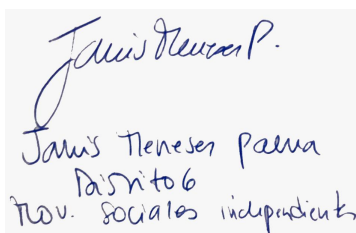 Janis Meneses P.
Janis Meneses Palma
Distrito 6
Mov. Sociales independientes